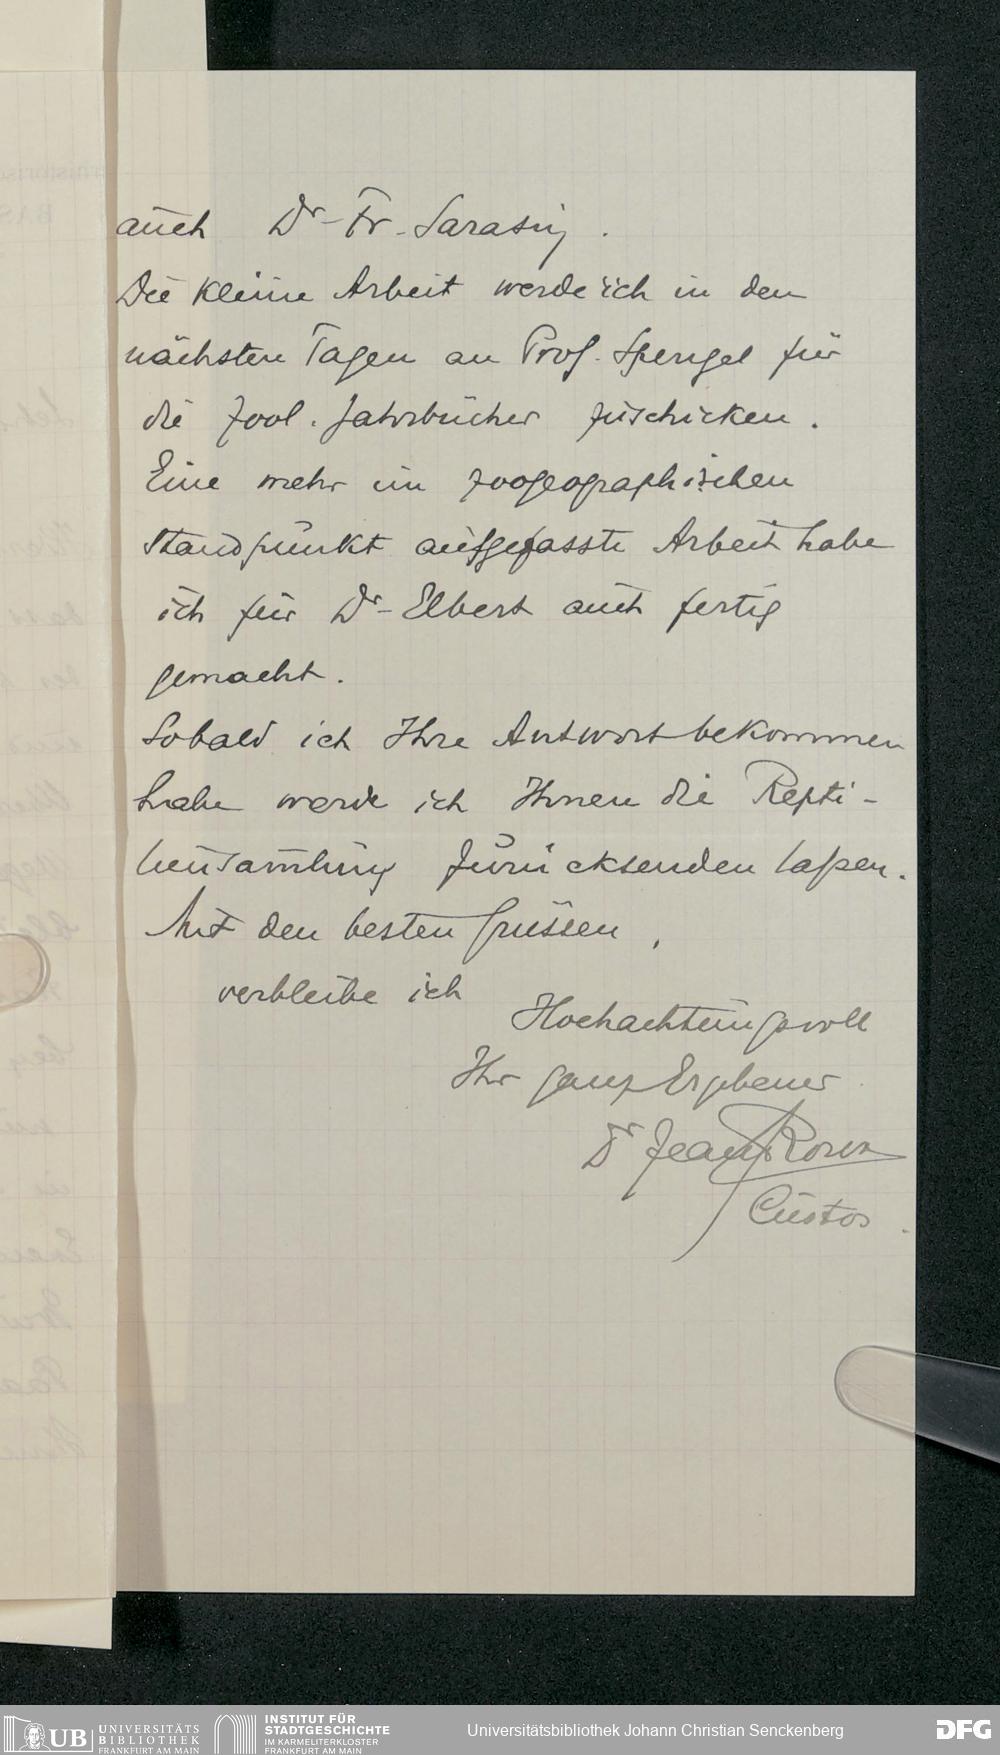 auch Dr. Fr. Sarasin.
Die kleine Arbeit werde ich in den
nächsten Tagen an Prof. Spengel für
die Zool. Jahrbücher zuschicken.
Eine mehr im zoogeographischen
Standpunkt aufgefasste Arbeit habe
ich für Dr. Elbert auch fertig
gemacht.
Sobald ich Ihre Antwort bekommen
habe werde ich Ihnen die Repti-
liensam̅lung zurücksenden laßen.
Mit den besten Grüssen,
verbleibe ich
Hochachtungsvoll
Ihr ganz Ergebener
Dr Jean Roux
Custos.
UB UNIVERSITÄTS
BIBLIOTHEK
FRANKFURT AM MAIN
INSTITUT FÜR
STADTGESCHICHTE
IM KARMELITERKLOSTER
FRANKFURT AM MAIN
Universitätsbibliothek Johann Christian Senckenberg
DFG